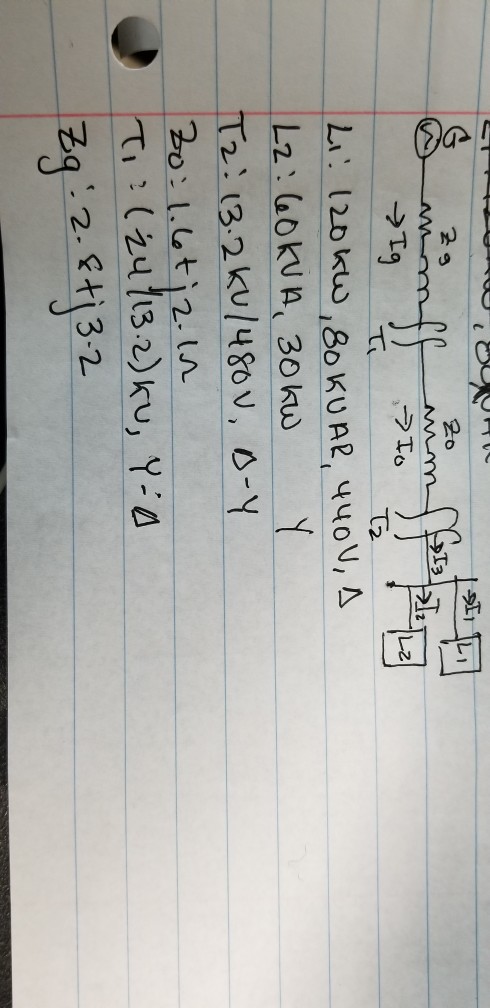 →I₁ L₁
G Zg Zo →I₃ →I₂ L₂
→Ig T₁ →Io T₂
L₁: 120KW, 80KVAR, 440V, Δ
L2: 60KVA, 30KW Y
T2: 13.2KV/480V, Δ-Y
Zo: 1.6+j2.1Ω
T₁: (24/13.2)KV, Y-Δ
Zg: 2.8+j3.2